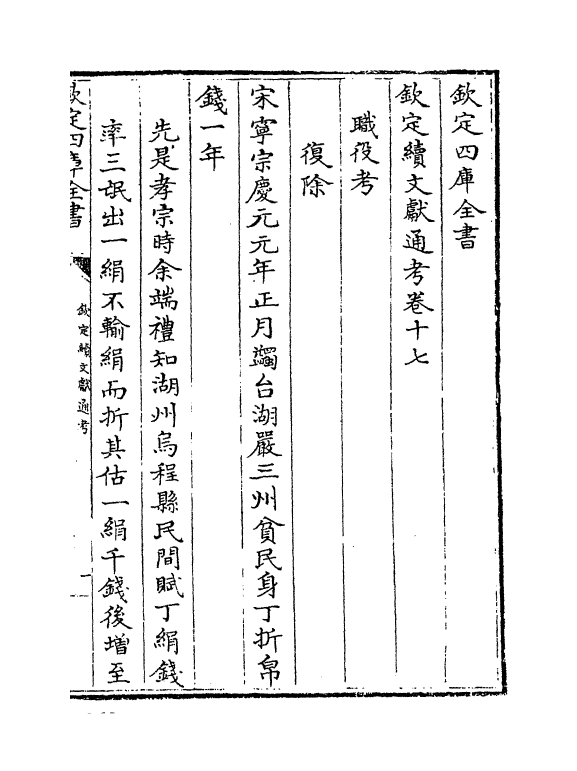 欽定四庫全書
欽定續文獻通考卷十七
職役考
復除
宋寧宗慶元元年正月蠲台湖嚴三州貧民身丁折帛
錢一年
先是孝宗時余端禮知湖州烏程縣民間賦丁絹錢
率三氓出一絹不輸絹而折其估一絹千錢後增至
欽定四庫全書
欽定續文獻通考
一